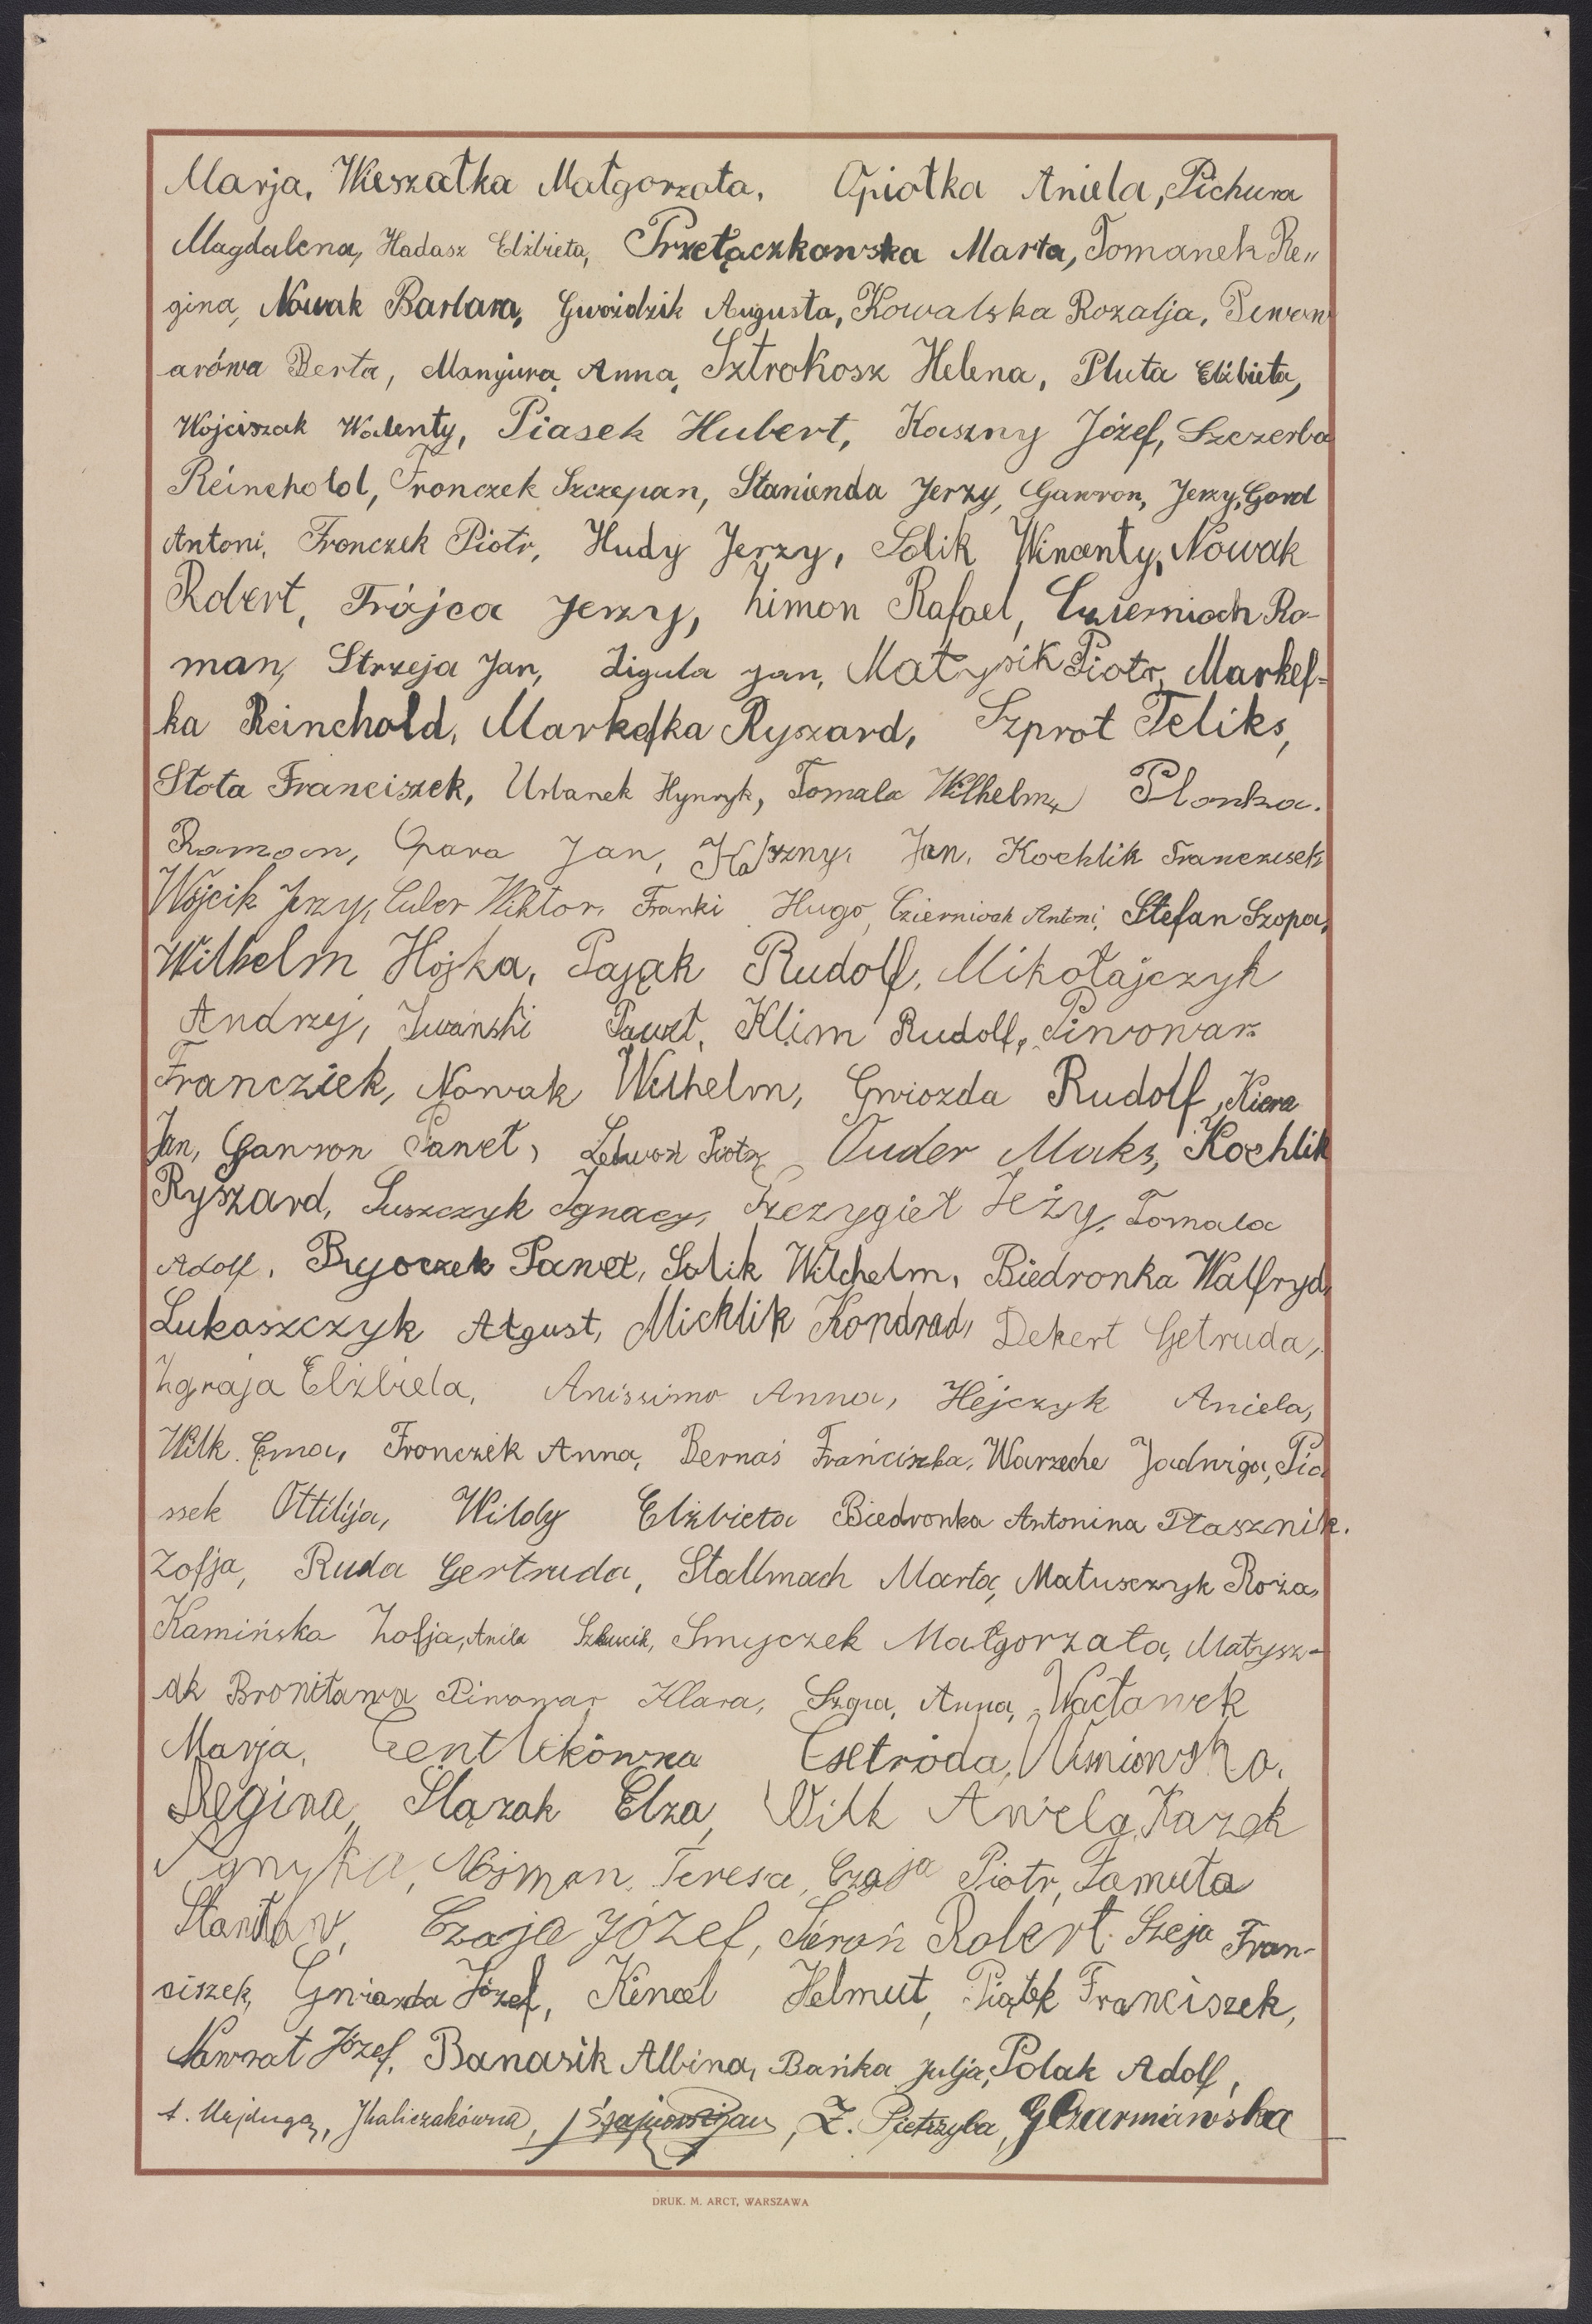 Marja, Wieszałka Małgorzata, Opiołka Aniela, Pichura
Magdalena, Hadasz Elżbieta, Przełączkowska Marta, Tomanek Re„
gina, Nowak Barbara, Gwoździk Augusta, Kowalska Rozalja, Piwow
arówa Berta, Manjura Anna, Sztrokosz Helena, Pluta Elżbieta,
Wojciszak Walenty, Piasek Hubert, Kaszny Józef, Szczerba
Reinchold, Fronczek Szczepan, Stanienda Jerzy, Gawron, Jerzy, Gord
Antoni, Fronczek Piotr, Hudy Jerzy, Solik Wincenty, Nowak
Robert, Trójca Jerzy, Zimon Rafael, Czierniach Ro-
man, Strzeja Jan, Ligula Jan, Matysik Piotr, Markef-
ka Reinchold, Markefka Ryszard, Szprot Feliks,
Stota Franciszek, Urbanek Hynryk, Tomala Wilhelm, Plonka.
Roman, Opara Jan, Kaszny, Jan, Kochlik Franczisek
Wójcik Jerzy, Culer Wiktor, Franki Hugo, Czierniach Antoni, Stefan Szopa,
Wilhelm Hojka, Pająk Rudolf, Mikołajczyk
Andrzej, Iwański Paweł, Klim Rudolf, Piwowarz
Francziek, Nowak Wilhelm, Gwiozda Rudolf, Kiera
Jan, Gawron Paweł, Piotr, Ouder Maks, Kochlik
Ryszard, Suszczyk Ignacy, Szczygieł Jeży, Tomala
Adolf, Paweł, Solik Wilchelm, Biedronka Walfryd,
Lukaszczyk Atgust, Micklik Kondrad, Dekert Getruda,
Zgraja Elżbieta, Anissimo Anna, Hejczyk Aniela,
Wilk Ema, Fronczek Anna, Bernaś Franciszka, Warzeche Jadwiga, Pia
ssek Ottilija, Wildy Elżbieta Biedronka Antonina Ptasznik.
Zofja, Ruda Gertruda, Stallmach Marta, Matusczyk Roża,
Kamińska Zofja, Anila Smyczek Małgorzata, Matysz-
ak Broniława Piwowar Klara, Anna, Wacławek
Marja, Gentlikówna Getroda,
Regina, Ślązak Elza, Wilk Aniela, Kazek
Najman Teresa, Czaja Piotr, Famuła
Staniław, Czaja Józef, Sieroń Robert. Szeja Fran-
ciszek, Gwiazda Józef, Kincel Helmut, Piątek Franciszek,
Nawrat Józef, Banasik Albina, Bańka Julja, Polak Adolf,
Z. Pietrzyba, G Czarniawska
DRUK. M. ARCT, WARSZAWA